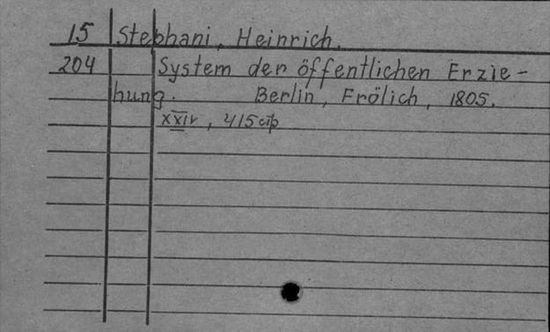 15 Stephani, Heinrich.
204 System der öffentlichen Erzie-
hung. Berlin, Frölich, 1805.
XXIV, 415 стр